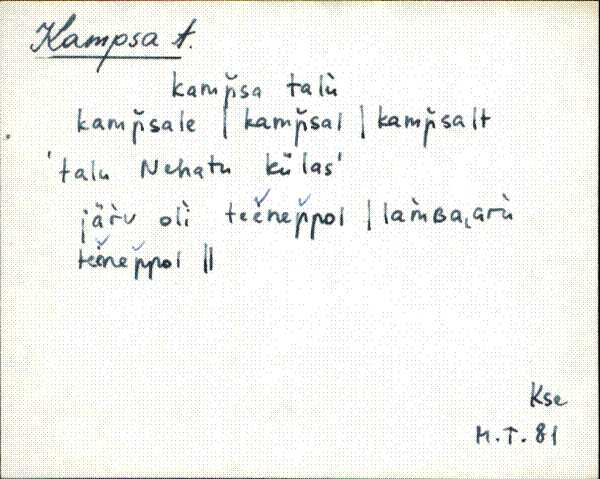 Kampsa t.
kamp̆sa talù
kamp̆sale | kamp̆sal | kamp̆salt
'talu Nehatu külas'
järv oli tèenep̆pol | lam̀ʙa,arù
tèenep̆pol ||
Kse
M.T. 81